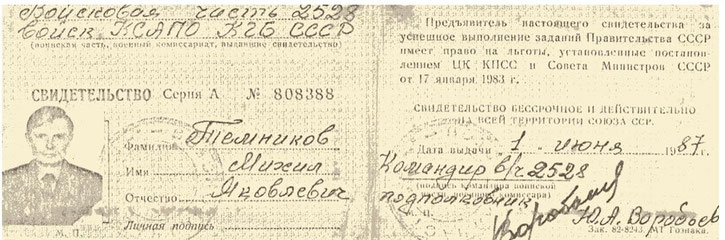 Войсковая часть 2528
войск КСАПО КГБ СССР
(воинская часть, военный комиссариат, выдавшие свидетельство)
СВИДЕТЕЛЬСТВО Серия А № 808388
Фамилия Темников
Имя Михил
Отчество Яковлевич
Личная подпись
М. П.
Предъявитель настоящего свидетельства за
успешное выполнение заданий Правительства СССР
имеет право на льготы, установленные постанов-
лением ЦК КПСС и Совета Министров СССР
от 17 января 1983 г.
СВИДЕТЕЛЬСТВО БЕССРОЧНОЕ И ДЕЙСТВИТЕЛЬНО
НА ВСЕЙ ТЕРРИТОРИИ СОЮЗА ССР.
Дата выдачи 1 июня 1987 г.
Командир в/ч 2528
(подпись командира воинской
подполковник
Ю.А. Воробьев
Зак. 82-8243. МТ Гознака.